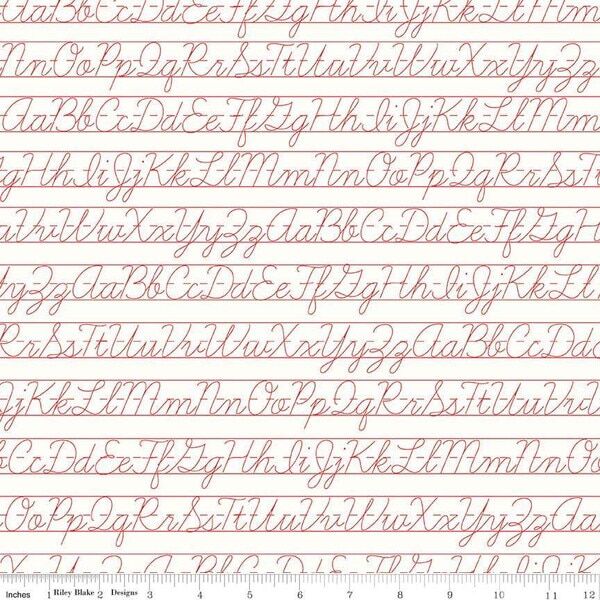 Ee Ff Gg Hh Ii Jj Kk Ll Mm
Nn Oo Pp Qq Rr Ss Tt Uu Vv Ww Xx Yy Zz
Aa Bb Cc Dd Ee Ff Gg Hh Ii Jj Kk Ll Mm
g Hh Ii Jj Kk Ll Mm Nn Oo Pp Qq Rr Ss T
u Vv Ww Xx Yy Zz Aa Bb Cc Dd Ee Ff Gg H
Yy Zz Aa Bb Cc Dd Ee Ff Gg Hh Ii Jj Kk L
Rr Ss Tt Uu Vv Ww Xx Yy Zz Aa Bb Cc Dd E
Jj Kk Ll Mm Nn Oo Pp Qq Rr Ss Tt Uu V
b Cc Dd Ee Ff Gg Hh Ii Jj Kk Ll Mm Nn Oo
Oo Pp Qq Rr Ss Tt Uu Vv Ww Xx Yy Zz Aa
Inches 1 Riley Blake 2 Designs 3 4 5 6 7 8 9 10 11 12